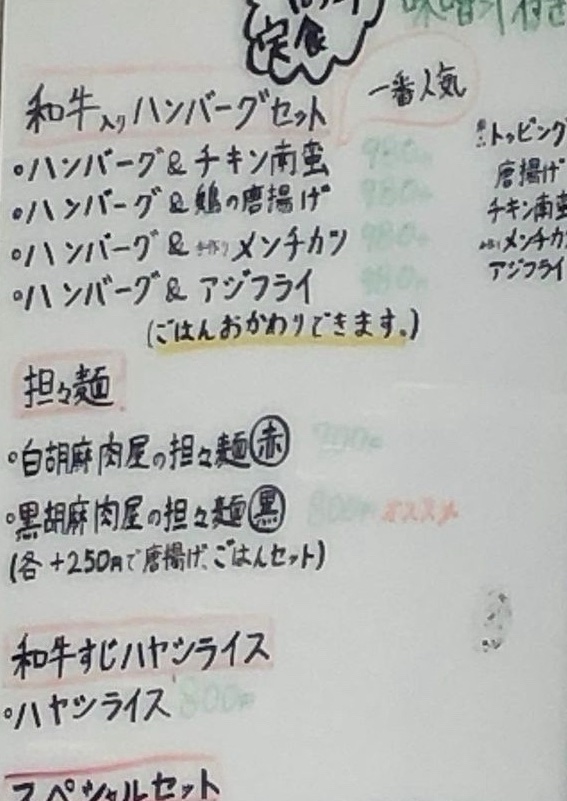 定食
味噌汁付き
和牛入りハンバーグセット
一番人気
・ハンバーグ&チキン南蛮 980円
・ハンバーグ&鶏の唐揚げ 980円
・ハンバーグ&手作りメンチカツ 980円
・ハンバーグ&アジフライ 980円
(ごはんおかわりできます。)
トッピング
唐揚げ
チキン南蛮
メンチカツ
アジフライ
担々麺
・白胡麻肉屋の担々麺赤
・黒胡麻肉屋の担々麺黒 800円 オススメ
(各+250円で唐揚げ、ごはんセット)
和牛すじハヤシライス
・ハヤシライス 800円
スペシャルセット